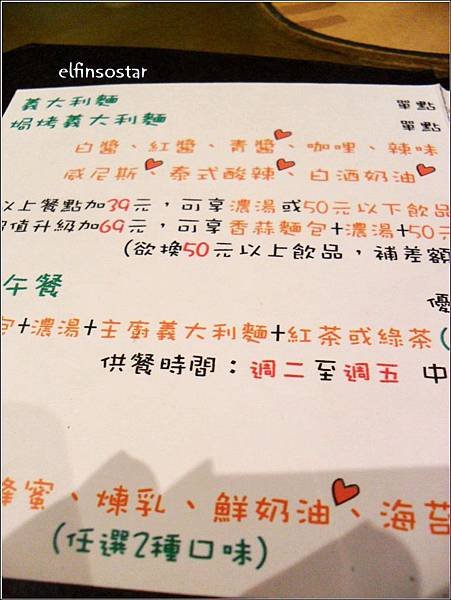 elfinsostar
義大利麵 單點
焗烤義大利麵 單點
白醬、紅醬、青醬、咖哩、辣味
威尼斯、泰式酸辣、白酒奶油
以上餐點加39元，可享濃湯或50元以下飲品
值升級加69元，可享香蒜麵包+濃湯+50元
(欲換50元以上飲品，補差額
午餐 優
包+濃湯+主廚義大利麵+紅茶或綠茶(
供餐時間：週二至週五 中
蜂蜜、煉乳、鮮奶油、海苔
(任選2種口味)